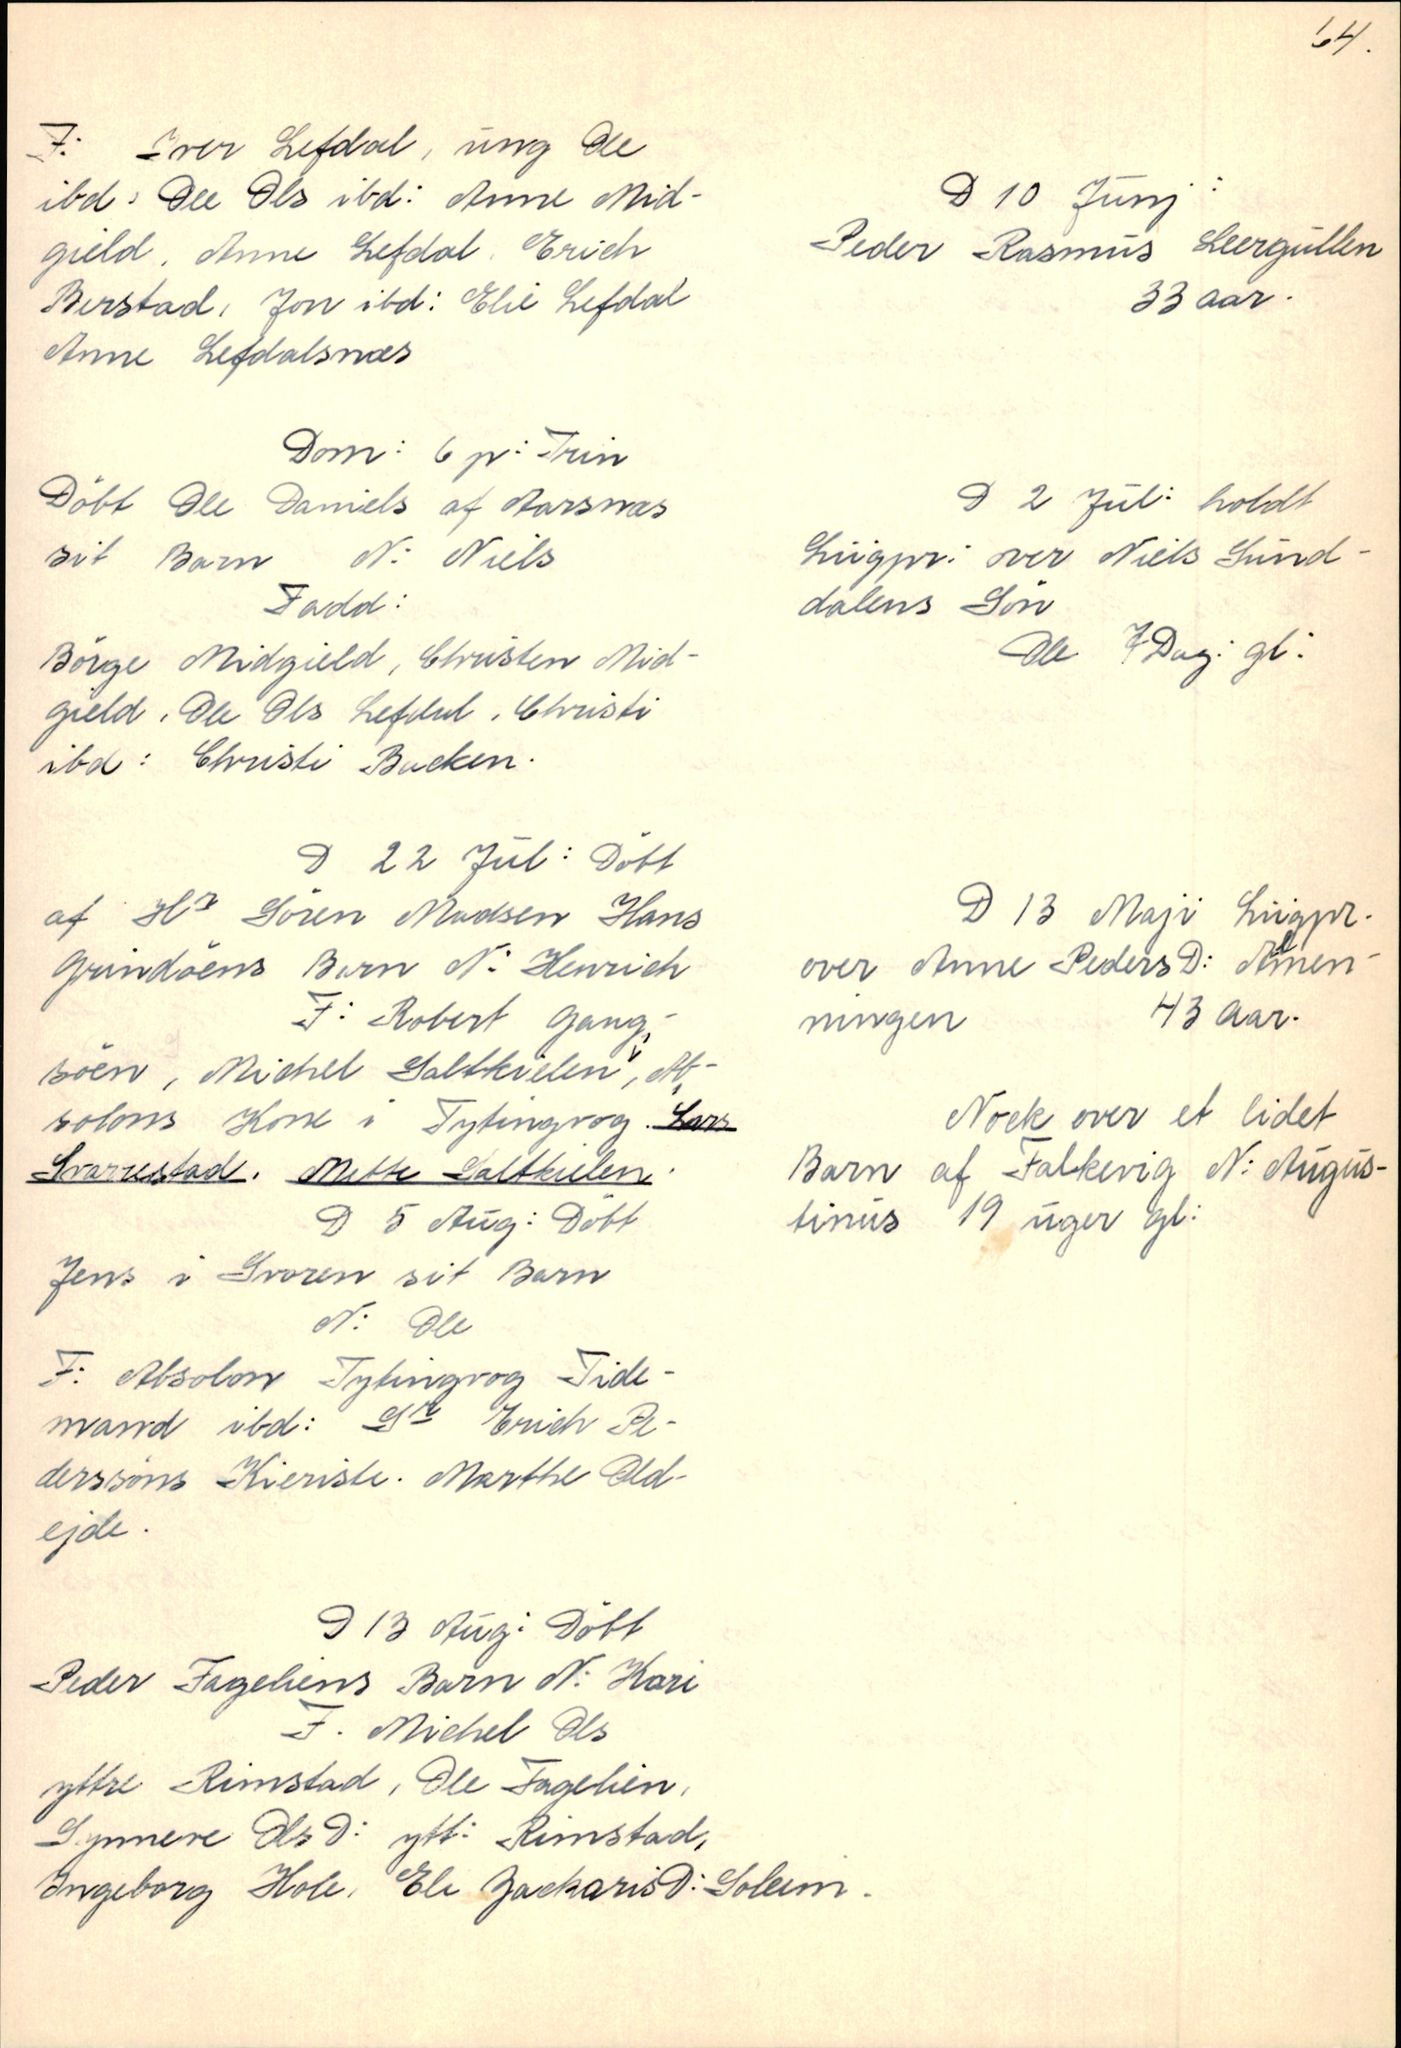 64.
F: Iver Lefdal, ung Ole
ibd: Ole Ols ibd: Anne Mid-
gield, Anne Lefdal. Erich
Berstad, Jon ibd: Elie Lefdal
Anne Lefdalsnæs
Dom: 6 p: Trin
Döbt Ole Daniels af Aarsnæs
sit Barn N: Niels
Fadd:
Börge Midgield, Christen Mid-
gield, Ole Ols Lefdal, Christi
ibd: Christi Backen.
D 22 Jul: Döbt
af Hr Sören Madsen Hans
Grindöens Barn N: Henrich
F: Robert Gang-
söen, Michel Saltkielen, Ab-
solons Kone i Tytingvog. Lars
Svarrestad. Mette Saltkielen.
D 5 Aug: Döbt
Jens i Svoren sit Barn
N: Ole
F: Absolon Tytingvog Tide-
mand ibd: Sr Erich Pe-
derssöns Kieriste. Marthe Old-
ejde.
D 13 Aug: Döbt
Peder Fageliens Barn N: Kari
F. Michel Ols
yttre Rimstad, Ole Fagelien,
Synneve Ols D: ytt: Rimstad,
Ingeborg Hole, Ele Zackaris D: Soleim.
D 10 Junj:
Peder Rasmus Leergullen
33 aar.
D 2 Jul: holdt
Liigpr: over Niels Sund-
dalens Sön
Ole 7 Dag: gl:
D 13 Maji Liigpr.
over Anne Peders D: Almen-
ningen 43 Aar.
Nock over et lidet
Barn af Falkevig N: Augus-
tinus 19 uger gl: